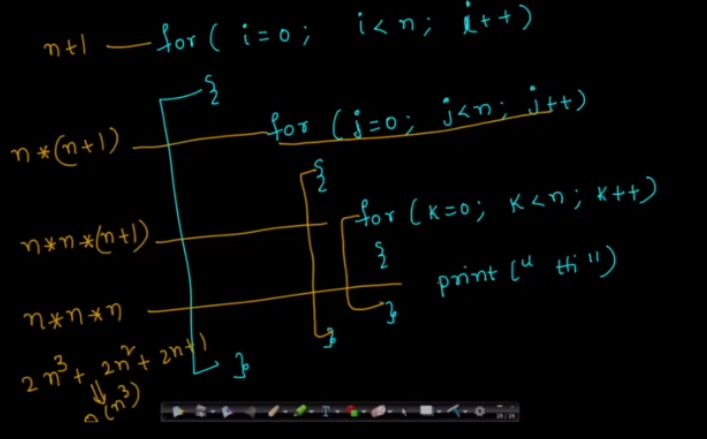 n+1 — for( i=0; i<n; i++)
{
n*(n+1) — for (j=0; j<n; j++)
{
n*n*(n+1) — for (k=0; k<n; k++)
{
n*n*n — print (" Hi")
}
}
}
2n³ + 2n² + 2n+1
⇓
O(n³)
28 / 28